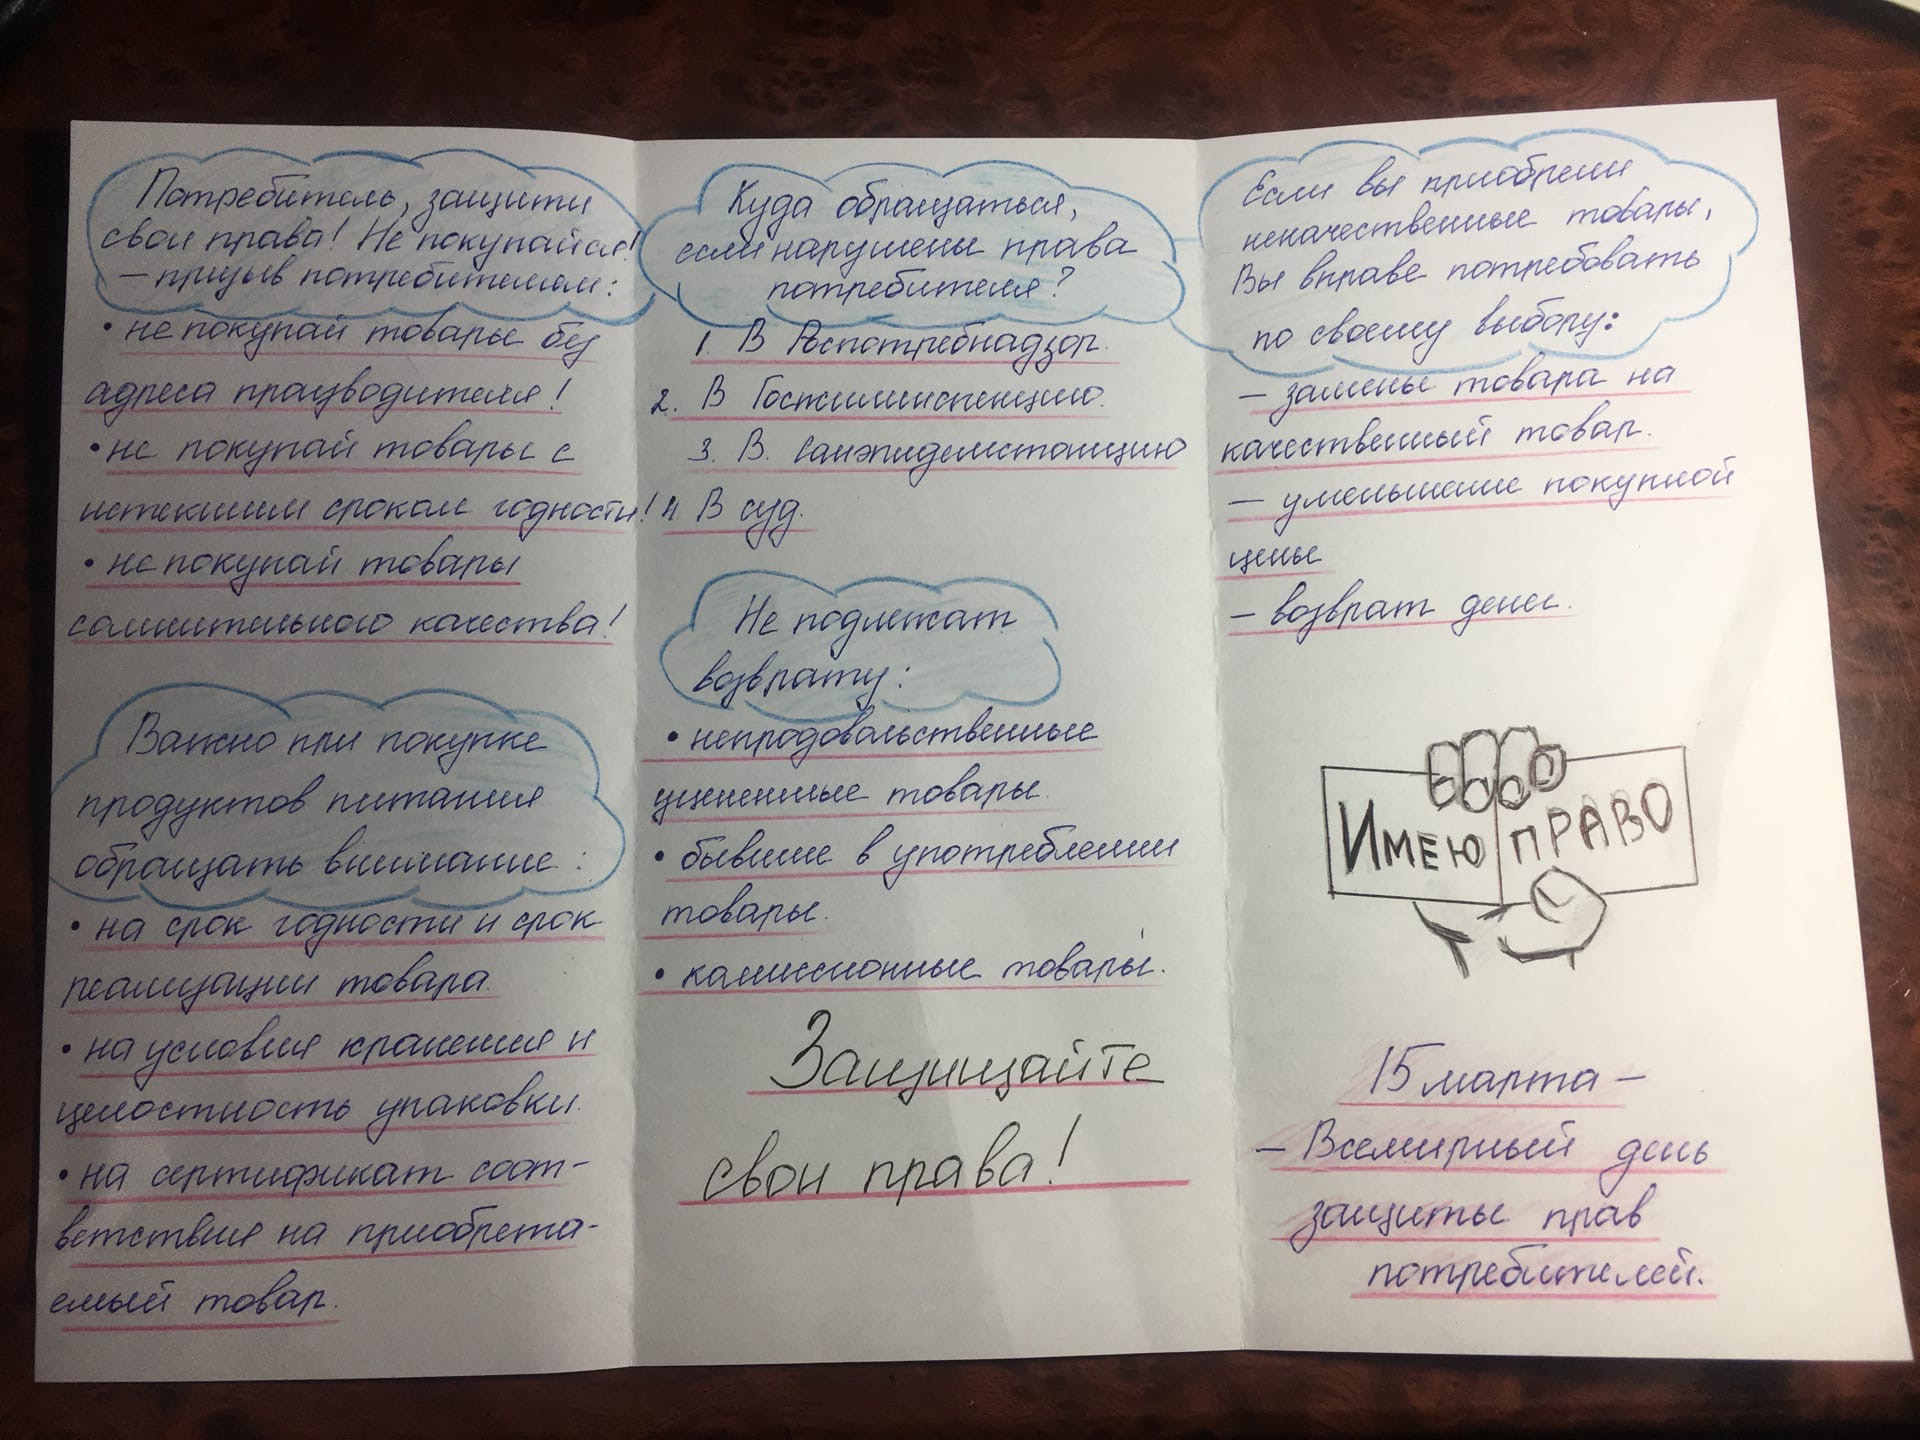 Потребитель, защити
свои права! Не покупайся!
– призыв потребителям:
• не покупай товары без
адреса производителя!
• не покупай товары с
истекшим сроком годности!
• не покупай товары
сомнительного качества!
Важно при покупке
продуктов питания
обращать внимание:
• на срок годности и срок
реализации товара.
• на условия хранения и
целостность упаковки.
• на сертификат соот-
ветствия на приобрета-
емый товар.
Куда обращаться,
если нарушены права
потребителя?
1. В Роспотребнадзор.
2. В Госжилинспекцию.
3. В. Санэпидемстанцию
4. В суд.
Не подлежат
возврату:
• непродовольственные
уцененные товары.
• бывшие в употреблении
товары.
• комиссионные товары.
Защищайте
свои права!
Если вы приобрели
некачественные товары,
Вы вправе потребовать
по своему выбору:
– замены товара на
качественный товар.
– уменьшение покупной
цены
– возврат денег.
ИМЕЮ ПРАВО
15 марта –
– Всемирный день
защиты прав
потребителей.